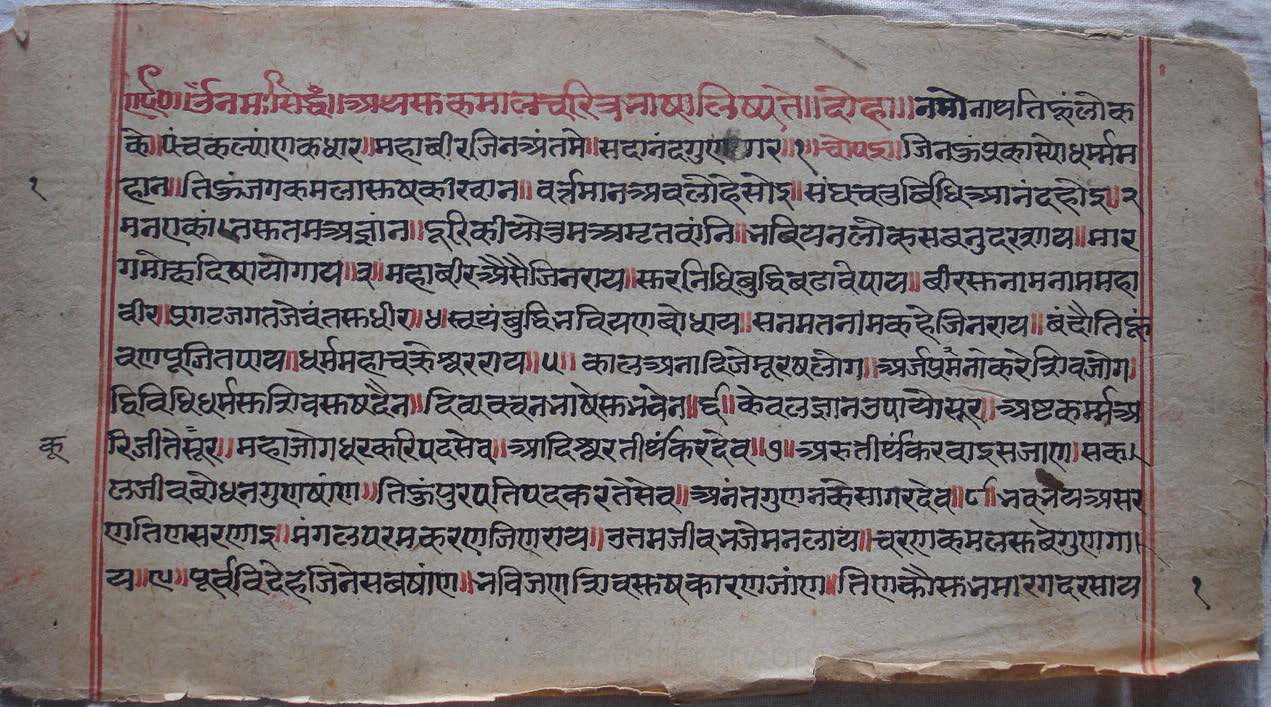 ॥र्द०॥ ॐनमःसिद्धं॥ अथसुकमालचरित्रभाषालिष्यते॥ दोहा॥ नमोनाथतिहूंलोक
के॥ पंचकल्यांणकधार॥ महाबीरजिनअंतमे॥ सदानंदगुण गर॥१॥ चौपइ॥ जिनऊंप्रकास्योधर्म्मम
१ हान॥ तिऊंजगकमलासुषकीखान॥ वर्त्तमानअवलोहेसोइ॥ संघचतुबिधिआनंदहोइ॥२
मनएकां तसुतमअज्ञांन॥ दूरिकीयोउमअमृतवांनि॥ भबियनलोकसबनु मार
गमोक्षदिषायोगाय॥३॥ महाबीरअैसैजिनराय॥ सुरनिधिबुद्धिबढावेपाय॥ बीरसुनामनाममहा
वीर॥ प्रगटजगतजेवंतसुधीर॥४॥ स्वयंबुद्धिभवियणबोधाय॥ सनमतनामकहेजिनराय॥ बंदौतिहूं
वणपूजितपाय॥ धर्ममहाचक्रेश्वरराय॥५॥ कालअनादिजेमूरषलोग॥ करेशिवजोग
द्विविधिधर्मसुशिवसुषदैन॥ दिव्यवचनभाषेसुभवेन॥६॥ केवलज्ञानउपायोसूर॥ अष्टकर्म्मअ
कू रिजीतेसूंर॥ महाजोगधरकरिपदसेव॥ आदिश्वरतीर्थंकरदेव॥७॥ अरुतीर्थंकरवाइसजाण॥ सक
लजीवबोधनगुणषांण॥ तिऊंपुरपतिपदकरतेसेव॥ अनंतगुणनकेसागरदेव॥८॥ भवभयअसर
णतिणसरणाइ॥ मंगलपरमकरणजिणराय॥ उतमजीवभजैमनलाय॥ चरणकमलसुबेगुणगा
य॥९॥ पूर्वविदेहजिनेसबषांण॥ भविजणशिवसुषकारणजांण॥ तिणकौसुभमारगदरसाय १